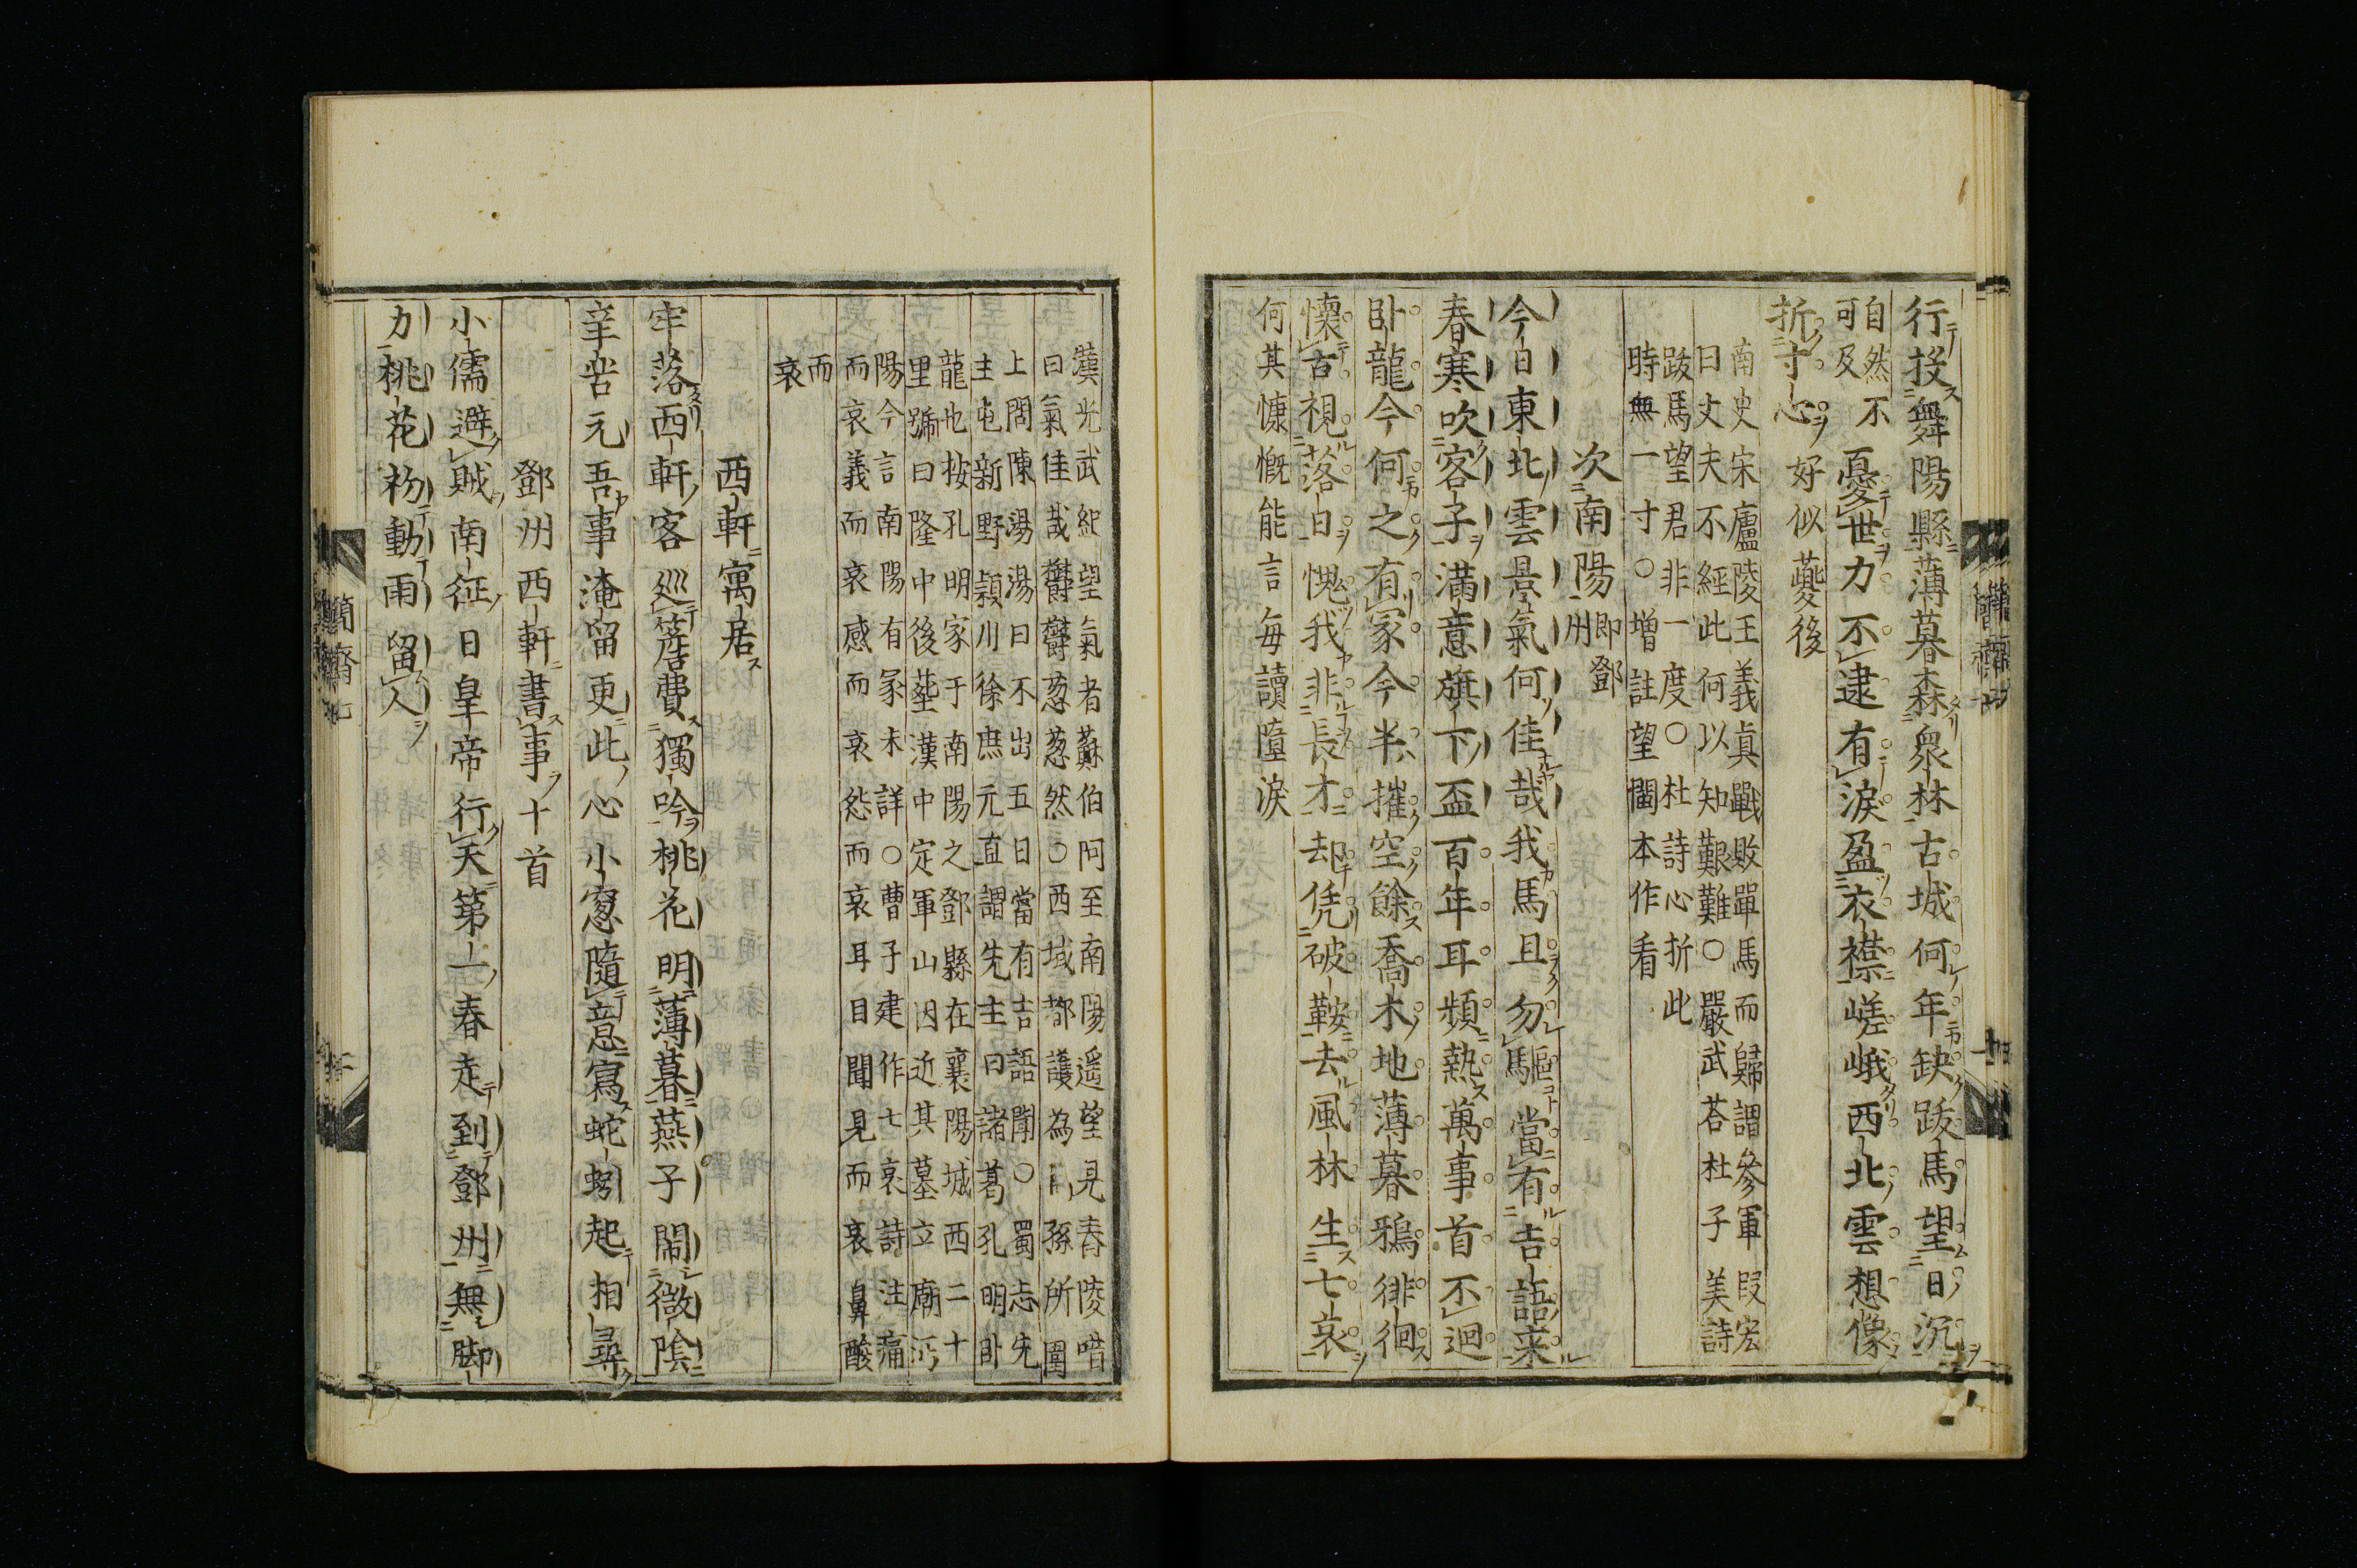 行投舞陽縣薄暮森衆林古城何年缺跋馬望日沉
自然不
可及
憂世力不逮有淚盈衣襟嵯峨西北雲想像
折寸心好似夔後
南史宋廬陵王義眞戰敗單馬而歸謂參軍叚宏
曰丈夫不經此何以知艱難○嚴武荅杜子美詩
跋馬望君非一度○杜詩心折此
時無一寸○增註望閩本作看
次南陽
即鄧
州
今日東北雲景氣何佳哉我馬且勿驅當有吉語来
春寒吹客子滿意旗下盃百年耳頻熱萬事首不迴
卧龍今何之有冢今半摧空餘喬木地薄暮鴉徘徊
懷古視落日愧我非長才去凭破鞍去風林生七哀
何其慷慨能言每讀墮淚
漢光武紀望氣者蘇伯阿至南陽遥望見舂陵喑
曰氣佳哉欝欝葱葱然○西域都護為孫所圍
上問陳湯湯曰不出五日當有吉語聞○蜀志先
主屯新野潁川徐庶元直謂先主曰諸葛孔明卧
龍也按孔明家于南陽之鄧縣在襄陽城西二十
里號曰隆中後塟漢中定軍山因近其墓立廟沔
陽今言南陽有冢未詳○曹子建作七哀詩注痛
而哀義而哀感而哀怨而哀耳目聞見而哀鼻酸
而
哀
西軒寓居
牢落西軒客巡簷費獨吟桃花明薄暮燕子閙微陰
辛苦元吾事淹留更此心小窓隨意寫蛇蚓起相尋
鄧州西軒書事十首
小儒避賊南征日皇帝行天第一春走到鄧州無脚
力桃花初動雨留人
簡齋七